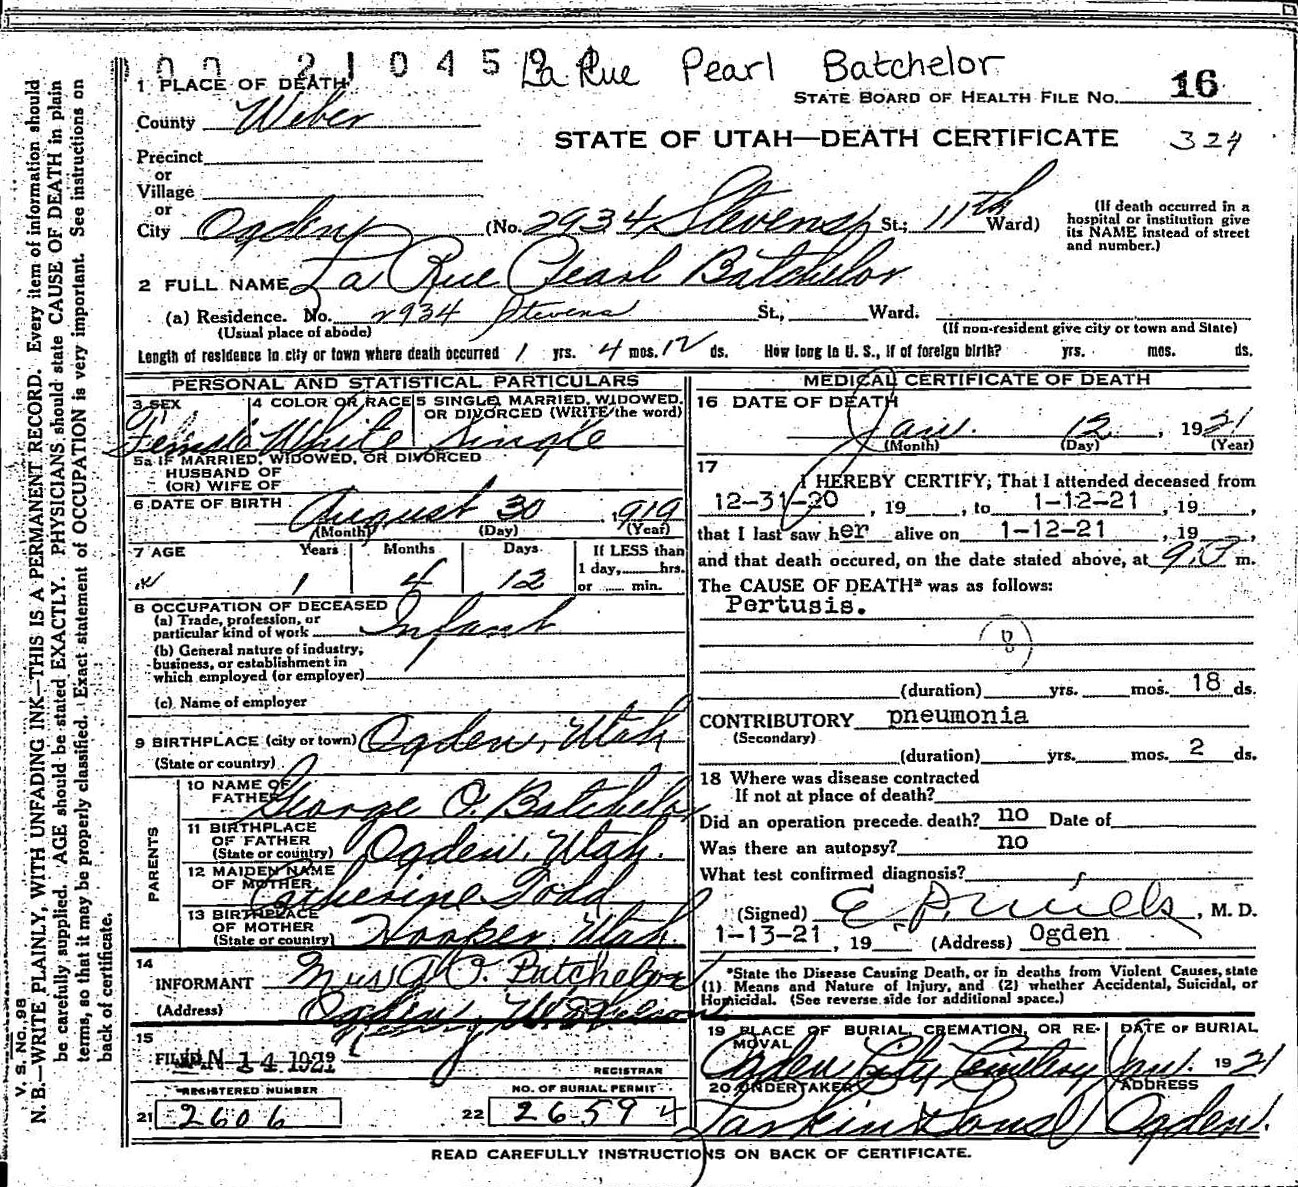 100 21045 La Rue Pearl Batchelor
1 PLACE OF DEATH
STATE BOARD OF HEALTH FILE NO. 16
County Weber
STATE OF UTAH—DEATH CERTIFICATE 324
Precinct
or
Village
or
City Ogden (No. 2934 Stevens St.; 11th Ward)
(If death occurred in a
hospital or institution give
its NAME instead of street
and number.)
2 FULL NAME La Rue Pearl Batchelor
(a) Residence. No. 2934 Stevens St., Ward.
(Usual place of abode) (If non-resident give city or town and State)
Length of residence in city or town where death occurred 1 yrs. 4 mos. 12 ds. How long in U. S., if of foreign birth? yrs. mos. ds.
PERSONAL AND STATISTICAL PARTICULARS
3 SEX 4 COLOR OR RACE 5 SINGLE, MARRIED, WIDOWED,
OR DIVORCED (WRITE the word)
Female White Single
5a IF MARRIED, WIDOWED, OR DIVORCED
HUSBAND OF
(OR) WIFE OF
6 DATE OF BIRTH August 30, 1919
(Month) (Day) (Year)
7 AGE Years Months Days If LESS than
1 day,......hrs.
1 4 12 or ...... min.
8 OCCUPATION OF DECEASED
(a) Trade, profession, or
particular kind of work Infant
(b) General nature of industry,
business, or establishment in
which employed (or employer)
(c) Name of employer
9 BIRTHPLACE (city or town) Ogden, Utah
(State or country)
PARENTS
10 NAME OF
FATHER George O. Batchelor
11 BIRTHPLACE
OF FATHER
(State or country) Ogden, Utah.
12 MAIDEN NAME
OF MOTHER Catherine Todd
13 BIRTHPLACE
OF MOTHER
(State or country) Hooper, Utah
14
INFORMANT Mrs G. O. Batchelor
(Address) Ogden,
15
FILED JAN 14 1921
REGISTRAR
REGISTERED NUMBER NO. OF BURIAL PERMIT
21 2606 22 2659
MEDICAL CERTIFICATE OF DEATH
16 DATE OF DEATH
Jan. 12, 1921
(Month) (Day) (Year)
17
I HEREBY CERTIFY, That I attended deceased from
12-31-20, 19 , to 1-12-21, 19 ,
that I last saw her alive on 1-12-21, 19 ,
and that death occured, on the date stated above, at m.
The CAUSE OF DEATH* was as follows:
Pertusis.
8
(duration) yrs. mos. 18 ds.
CONTRIBUTORY pneumonia
(Secondary)
(duration) yrs. mos. 2 ds.
18 Where was disease contracted
If not at place of death?
Did an operation precede death? no Date of
Was there an autopsy? no
What test confirmed diagnosis?
(Signed) , M. D.
1-13-21, 19 (Address) Ogden
*State the Disease Causing Death, or in deaths from Violent Causes, state
(1) Means and Nature of Injury, and (2) whether Accidental, Suicidal, or
Homicidal. (See reverse side for additional space.)
19 PLACE OF BURIAL, CREMATION, OR RE-
MOVAL
DATE OF BURIAL
Ogden City Cemetery Jan. 1921
20 UNDERTAKER ADDRESS
Larkin & Sons Ogden.
READ CAREFULLY INSTRUCTIONS ON BACK OF CERTIFICATE.
V. S. No. 98
N. B.—WRITE PLAINLY, WITH UNFADING INK—THIS IS A PERMANENT RECORD. Every item of information should
be carefully supplied. AGE should be stated EXACTLY. PHYSICIANS should state CAUSE OF DEATH in plain
terms, so that it may be properly classified. Exact statement of OCCUPATION is very important. See instructions on
back of certificate.